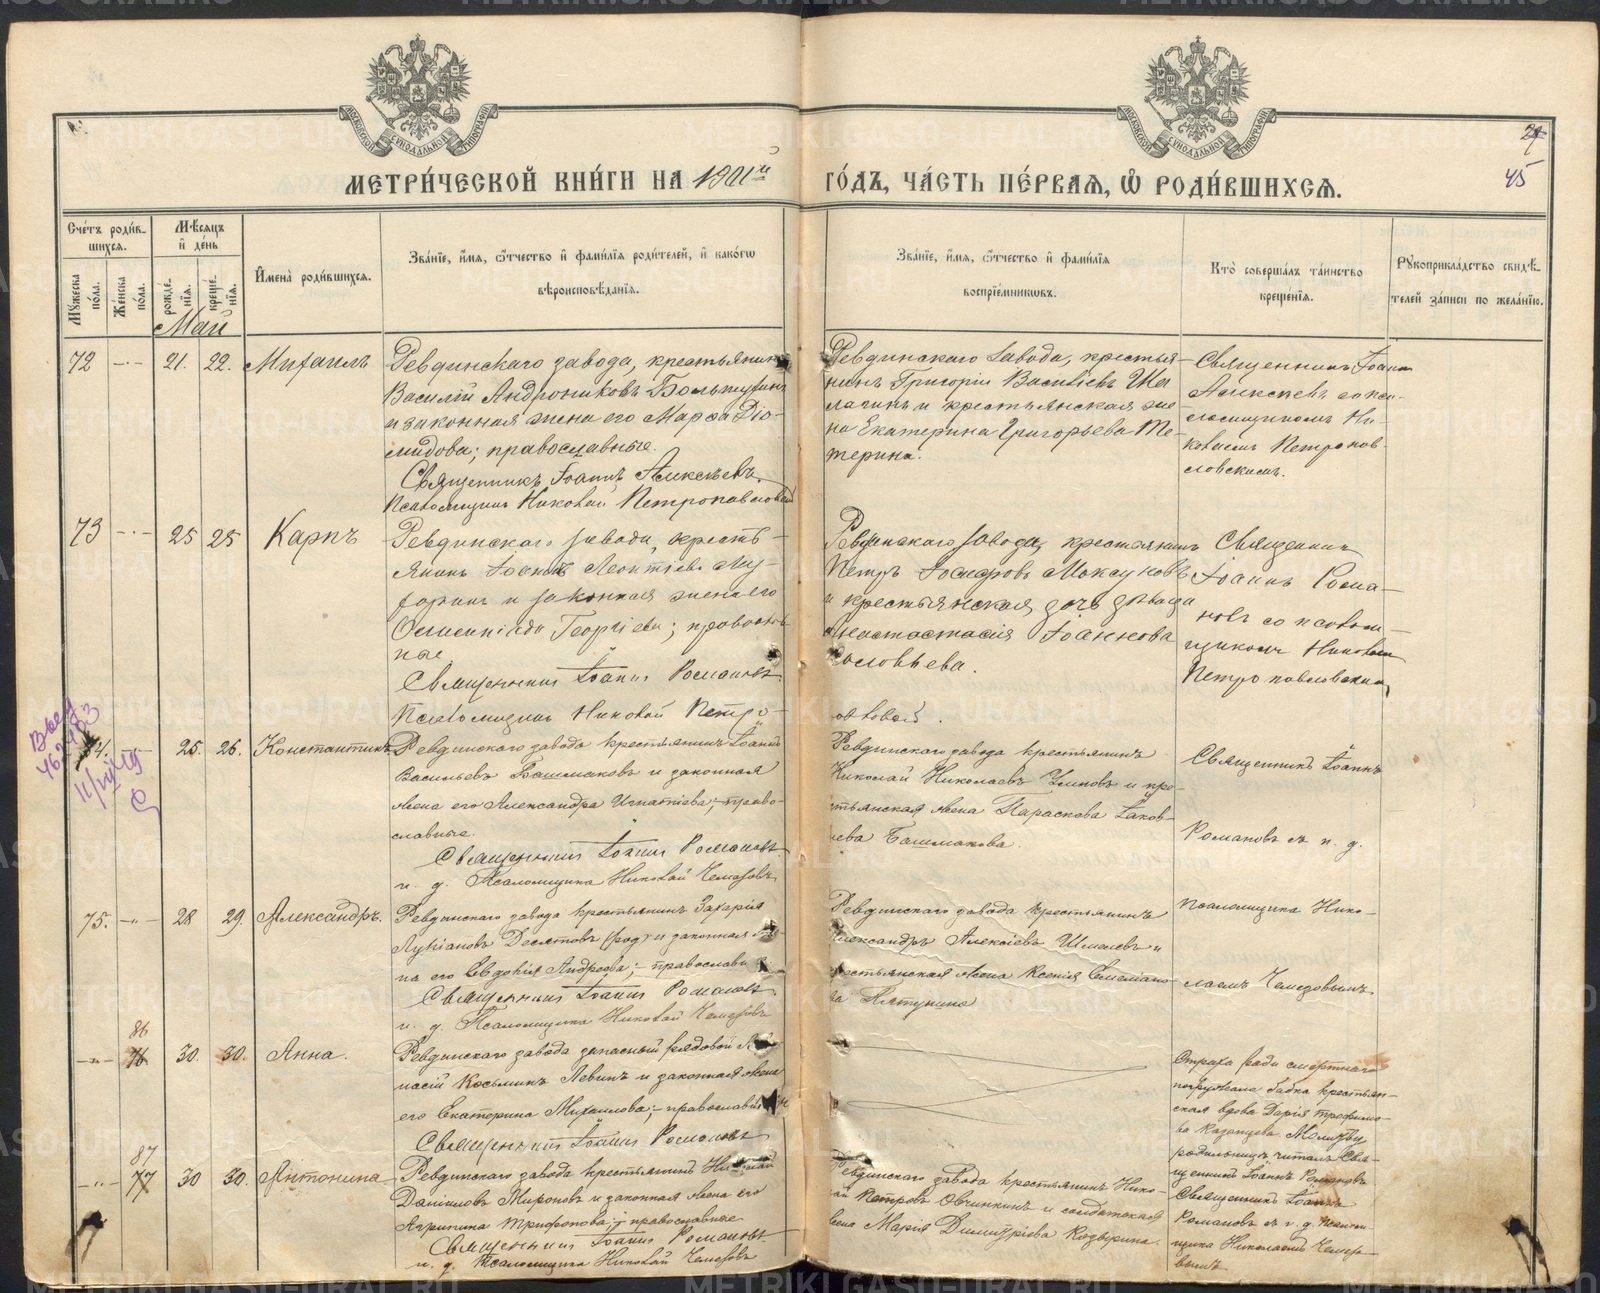 МЕТРИ́ЧЕСКОЙ КНИ́ГИ НА 1901й ГО́ДЪ, ЧА́СТЬ ПЕ́РВАѦ, Ѡ РОДИ́ВШИХСѦ.
45
Сче́тъ роди́в-
шихсѧ.
Мѣ́сѧцъ
и де́нь
Мꙋ́жеска
по́ла.
Же́нска
по́ла.
рожде́-
нїѧ.
креще́-
нїѧ.
Имена̀ роди́вшихсѧ.
Зва́нїе, и́мѧ, ѻ́тчество и фами́лїѧ роди́телей, и како́гѡ
вѣроисповѣ́данїѧ.
Зва́нїе, и́мѧ, ѻ́тчество и фами́лїѧ
воспрїе́мникѡвъ.
Кто̀ соверша́лъ та́инство
креще́нїѧ.
Рꙋкоприкла́дство свидѣ́-
телей за́писи по жела́нїю.
Май
72 — 21. 22. Михаилъ
Ревдинскаго завода, крестьянинъ
Василій Андрониковъ
и законная жена его Марѳа Діо-
мидова; православные.
Священникъ Іоаннъ Алексѣевъ.
Псаломщикъ Николай Петропавловскій
Ревдинскаго завода, крестья-
нинъ Григорій Васильевъ Ша-
лагинъ и крестьянская же
на Екатерина Григорьева Те-
терина.
Священникъ Іоаннъ
Алексѣевъ со пса-
ломщикомъ Ни-
колаемъ Петропав-
ловскимъ.
73 — 25 25 Карпъ
Ревдинскаго завода, кресть-
янинъ Іоаннъ Леонтіевъ Му-
и законная жена его
Олимпіада Георгіева; православ
ные
Священникъ Іоаннъ Романовъ.
Псаломщикъ Николай Петро-
павловскій.
Ревдинскаго завода, крестьянинъ
Петръ
и крестьянская дочь дѣвица
Анастасія Іоаннова
Соловьева.
Священникъ
Іоаннъ Рома-
новъ со псалом-
щикомъ Николаемъ
Петропавловскимъ
74. — 25. 26. Константинъ
Ревдинскаго завода крестьянинъ Іоаннъ
Васильевъ Башмаковъ и законная
жена его Александра Игнатіева; право-
славные.
Священникъ Іоаннъ Романовъ.
и. д. Псаломщика Николай Чемезовъ
Ревдинскаго завода крестьянинъ
Николай Николаевъ и кре-
стьянская жена Параскева Іаков-
лева Башмакова.
Священникъ Іоаннъ
Романовъ съ и. д.
75. — 28 29. Александръ.
Ревдинскаго завода крестьянинъ Захарія
Лукіановъ Десятовъ и законная же-
на его Евдокія Андреева; православн
Священникъ Іоаннъ Романовъ.
и. д. Псаломщика Николай Чемезовъ
Ревдинскаго завода крестьянинъ
Александръ Алексіевъ Шмелевъ и
крестьянская жена Ксенія Емеліано-
ва Пятунина
псаломщика Нико-
лаемъ Чемезовымъ.
86
— 76 30. 30. Анна.
Ревдинскаго завода запасный рядовой
насій Косьминъ Левинъ и законная жена
его Екатерина Михаилова; православные
Священникъ Іоаннъ Романовъ
Страха ради смертнаго
погружала бабка крестьян-
ская вдова Дарія Трофимо-
ва Казанцева. Молитву
родильницѣ читалъ Свя-
щенникъ Іоаннъ Романовъ
87
— 77 30 30. Антонина
Ревдинскаго завода крестьянинъ Николай
Даніиловъ Мироновъ и законная жена его
Агрипина Трифонова; православные
Священникъ Іоаннъ Романовъ
и. д. Псаломщика Николай Чемезовъ
Ревдинскаго завода крестьянинъ Нико-
лай Петровъ Овчинкинъ и солдатская
жена Марія Димитріева Козырина.
Священникъ Іоаннъ
Романовъ съ и. д. псалом-
щика Николаемъ Чемезо-
вымъ.